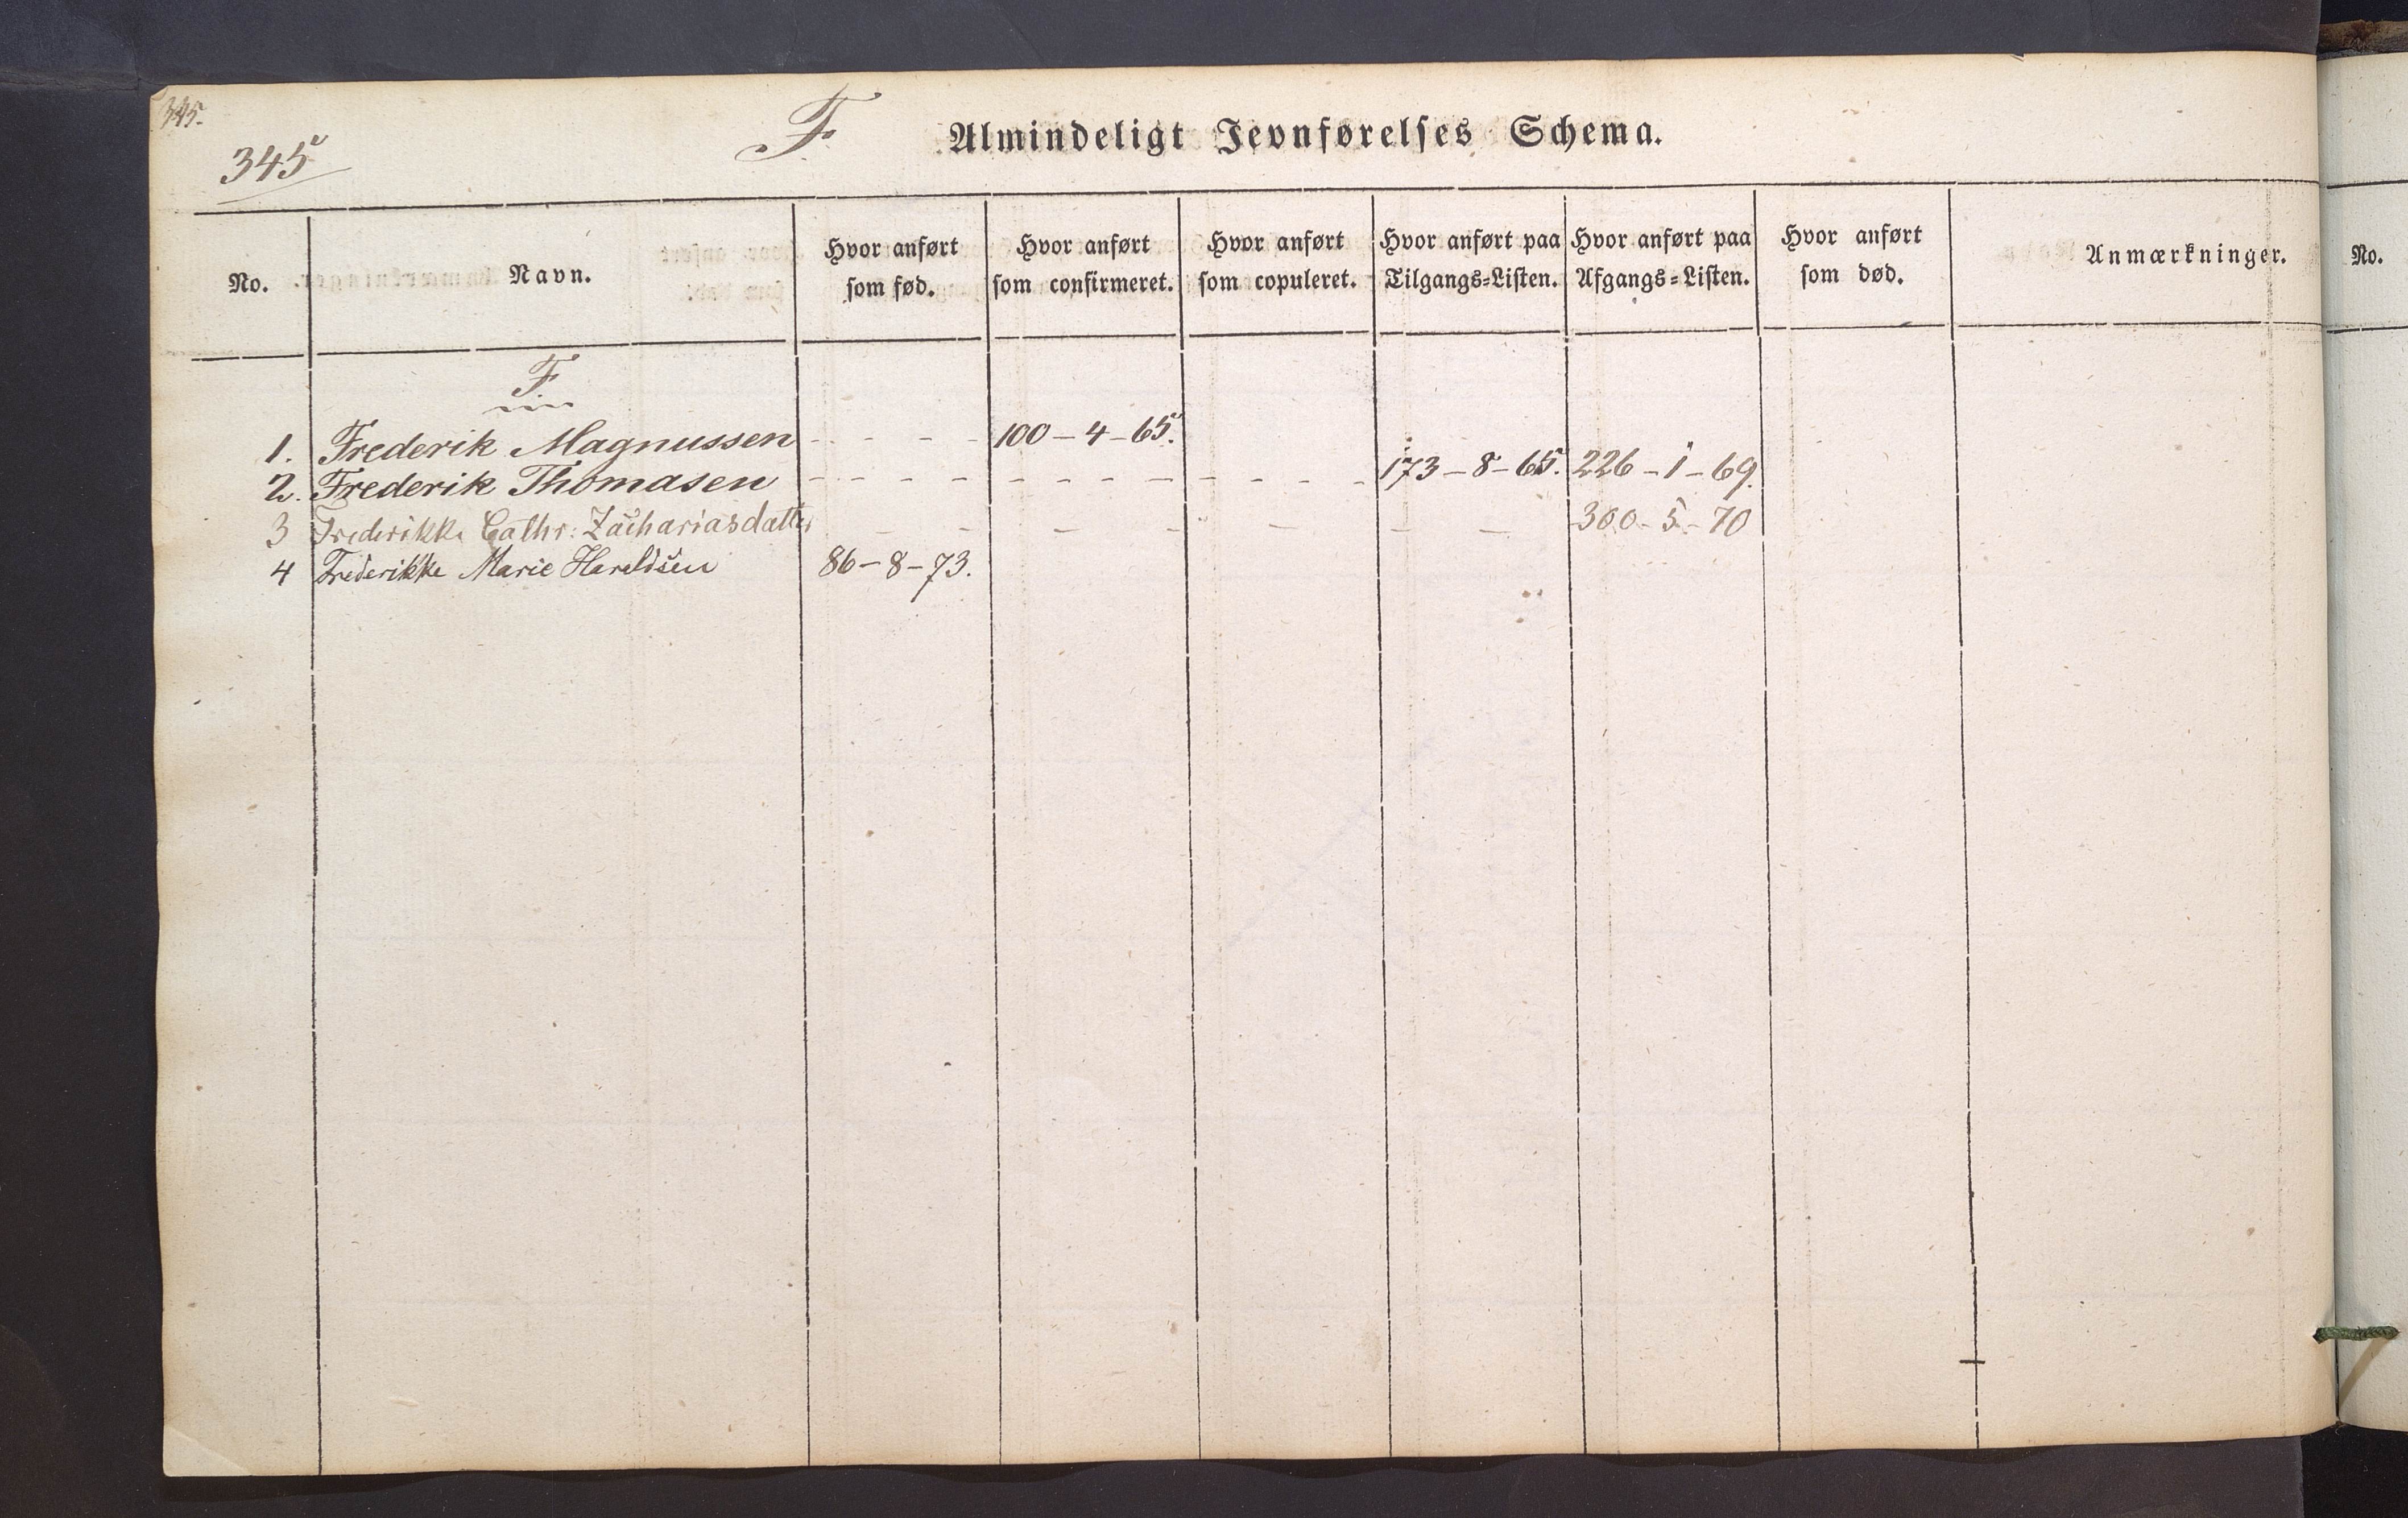 345.
345
F. Almindeligt Jevnførelses Schema.
No. Navn. Hvor anført som fød. Hvor anført som confirmeret. Hvor anført som copuleret. Hvor anført paa Tilgangs=Listen. Hvor anført paa Afgangs=Listen. Hvor anført som død. Anmærkninger. No.
F
1. Frederik Magnussen - - - - 100-4-65.
2. Frederik Thomasen - - - - - - - - - - - - 173-8-65. 226-1-69.
3 Frederikke Cathr: Zachariasdatter - - - - - - - 300-5-70
4 Frederikke Marie Hareldsen 86-8-73.